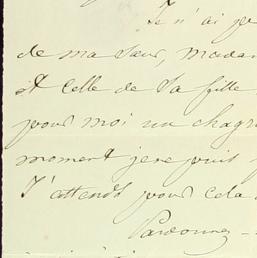 Je n'ai pe
de ma sœur, madam
et celle de sa fille
pour moi un chagr
moment je ne puis
J'attends pour cela
Pardonne-